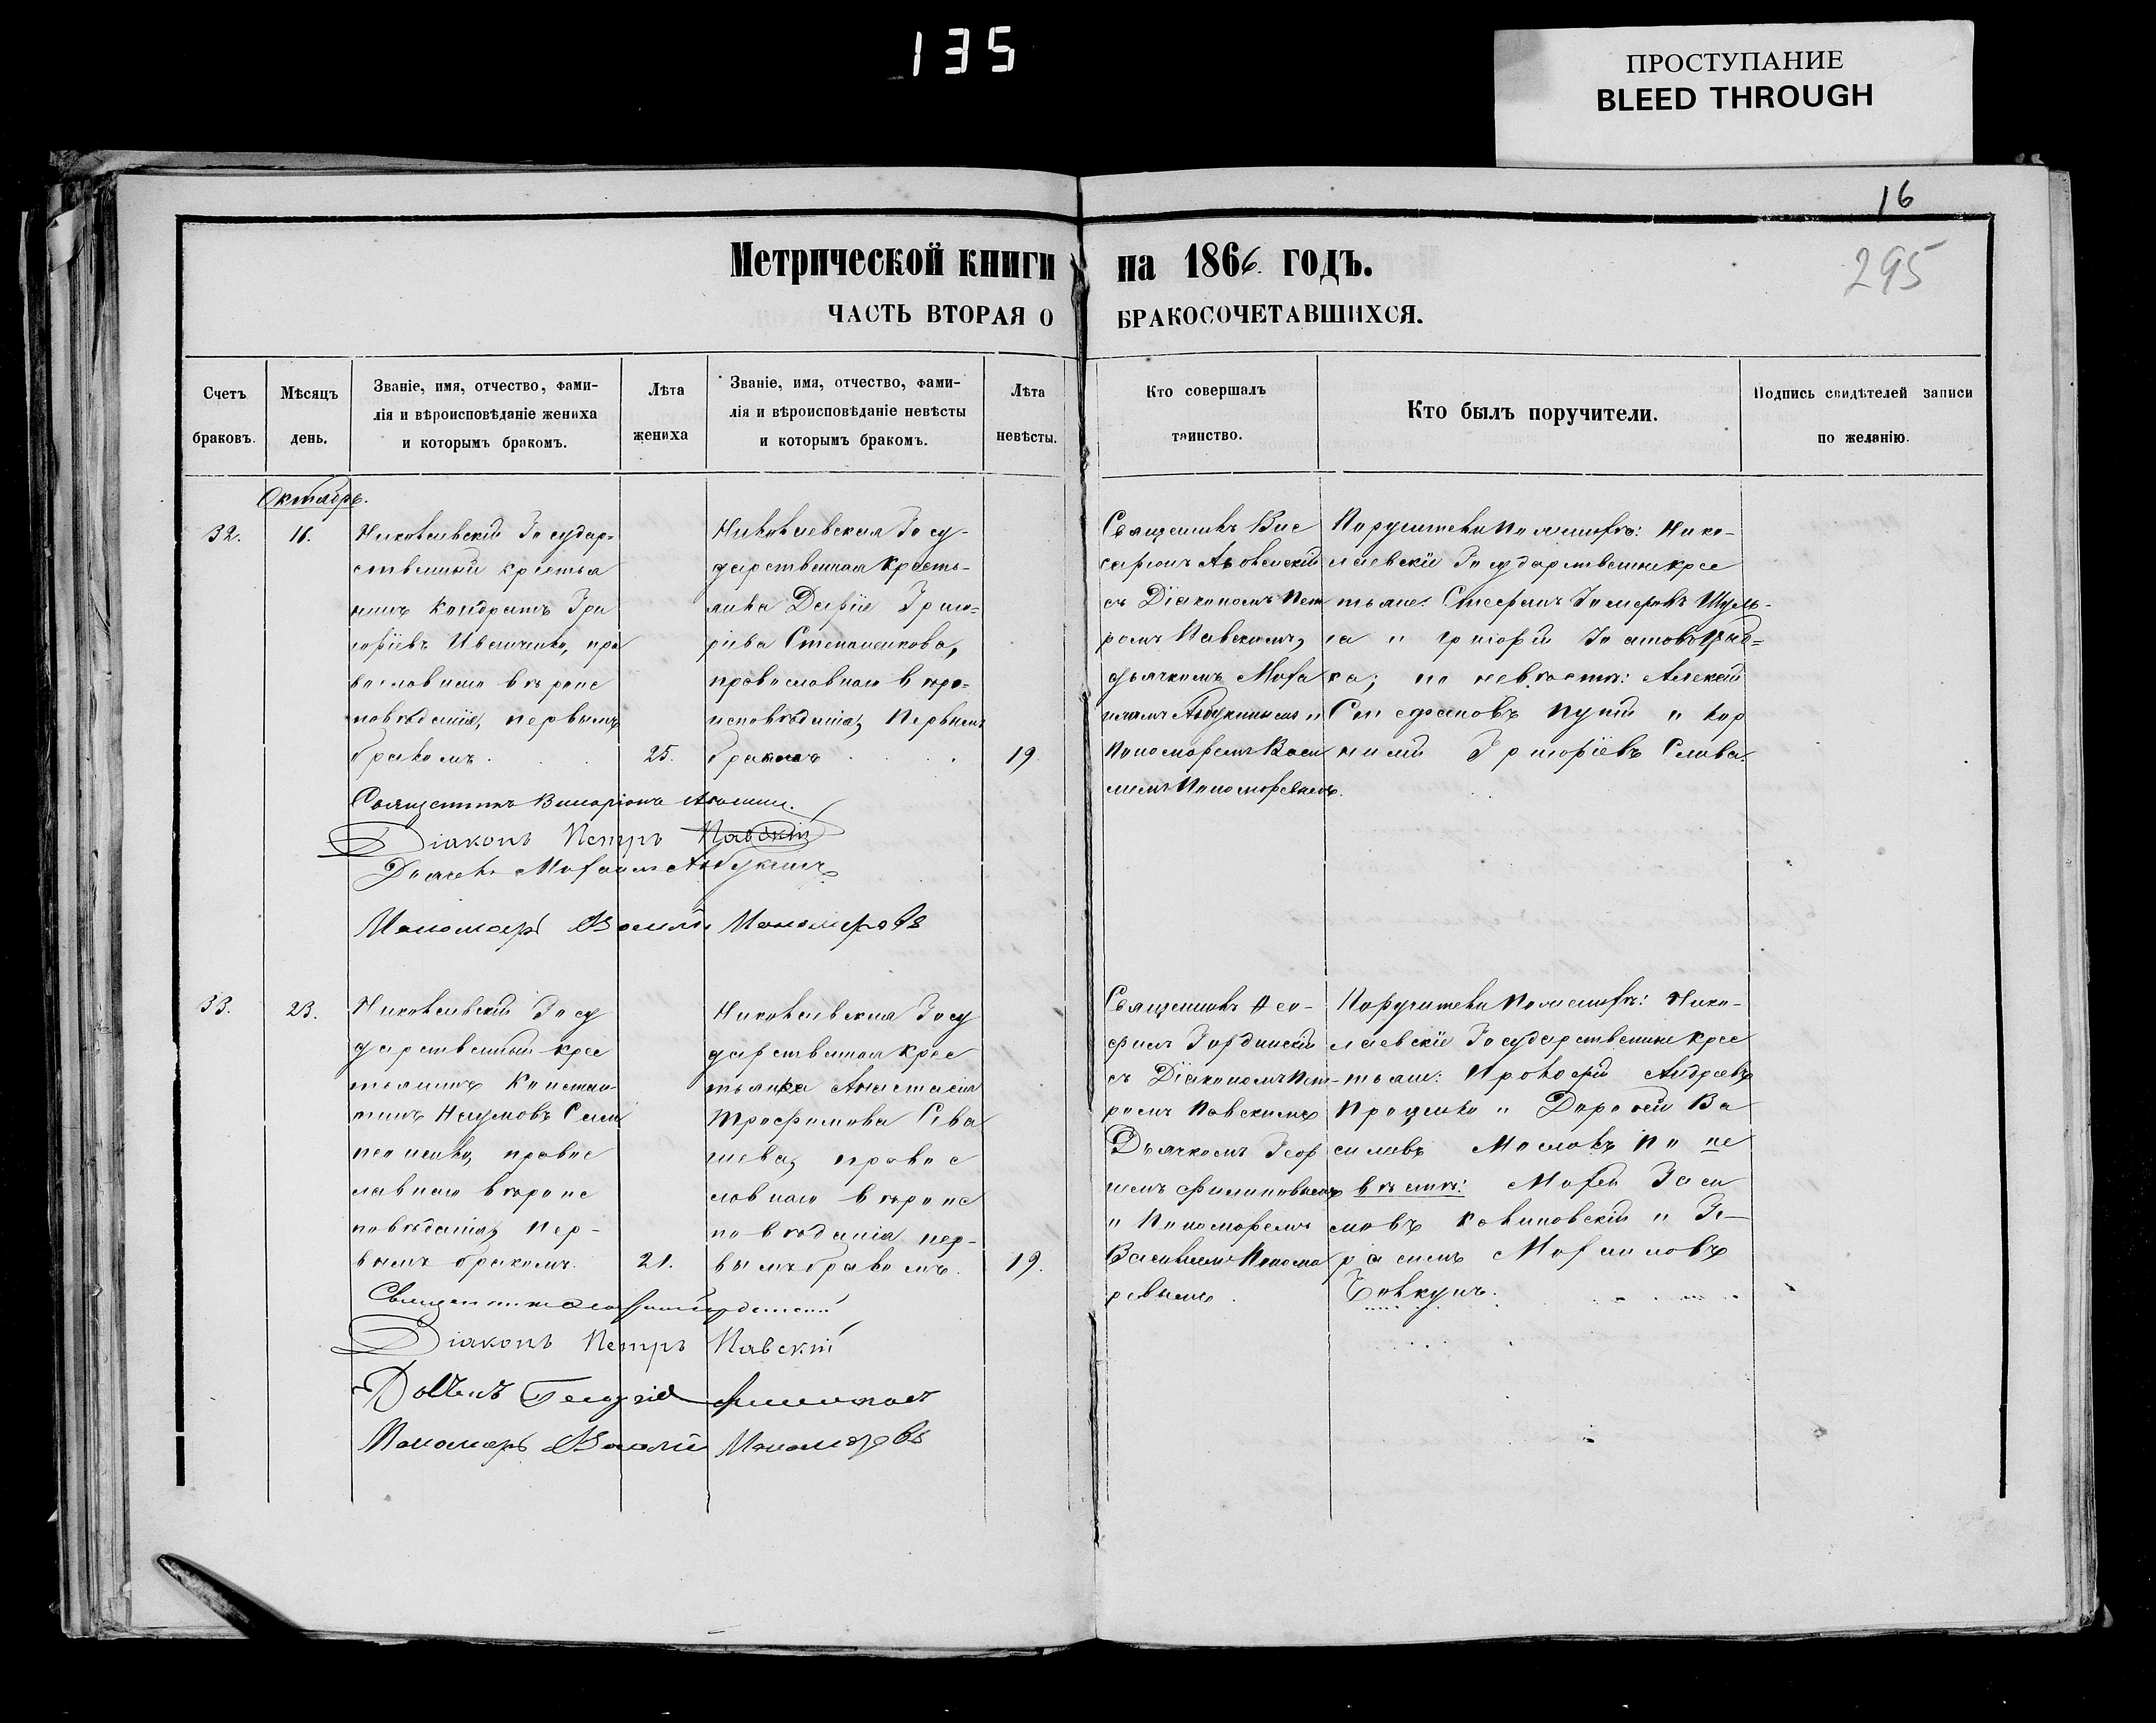 135
ПРОСТУПАНИЕ
BLEED THROUGH
16
295
Метрической книги на 1866 годъ.
ЧАСТЬ ВТОРАЯ О БРАКОСОЧЕТАВШИХСЯ.
Счетъ браковъ.
Мѣсяцъ день.
Званіе, имя, отчество, фами-
лія и вѣроисповѣданіе жениха
и которымъ бракомъ.
Лѣта жениха
Званіе, имя, отчество, фами-
лія и вѣроисповѣданіе невѣсты
и которымъ бракомъ.
Лѣта невѣсты.
Кто совершалъ
таинство.
Кто былъ поручители.
Подпись свидѣтелей записи
по желанію.
Октябрь.
32.
16.
Николаевскій Государ-
ственный крестья
нинъ Кондратъ Гри
горіевъ Иваниченко, пра
вославнаго вѣроис
повѣданія, первымъ
бракомъ.
25.
Николаевская Госу-
дарственная кресть-
янка Дарія Григо-
ріева Степаненкова,
православнаго вѣро-
исповѣданія, первымъ
бракомъ
19.
Священникъ Вис
саріонъ
съ Діакономъ Пет
ромъ Павскимъ,
дьячкомъ
Пономаремъ Васи
ліемъ Пономаревымъ.
Поручители по женихѣ: Нико-
лаевскіе Государственные крес
тьяне: Стефанъ
и Григорій
ка; по невѣстѣ: Алексѣй
Стефановъ и Кор
нилій Григоріевъ
Священникъ Виссаріонъ
Діаконъ Петръ Павскій
Дьячекъ
Пономарь Василій Пономаревъ
33.
23.
Николаевскій Госу
дарственный крес
тьянинъ Констан
тинъ Наумовъ
пененко, правос
лавнаго вѣроис
повѣданія, пер-
вымъ бракомъ.
21.
Николаевская Госу
дарственная крес
тьянка Анастасія
Трофимова Сива
шева, правос
лавнаго вѣроис
повѣданія пер-
вымъ бракомъ.
19.
Священникъ Ѳео-
филъ Гординскій
съ Діакономъ Пет-
ромъ Павскимъ
Дьячкомъ Геор
гіемъ Филиповымъ
и Пономаремъ
Василіемъ Понома
ревымъ.
Поручители по женихѣ: Нико-
лаевскіе Государственные крес
тьяне: Прокофій Андреевъ
Проценко и Дороѳей Ва
силевъ Масловъ по не
вѣстѣ:
мовъ и Ге-
расимъ
Діаконъ Петръ Павскій
Дьячекъ Георгій Филиповъ
Пономарь Василій Пономаревъ